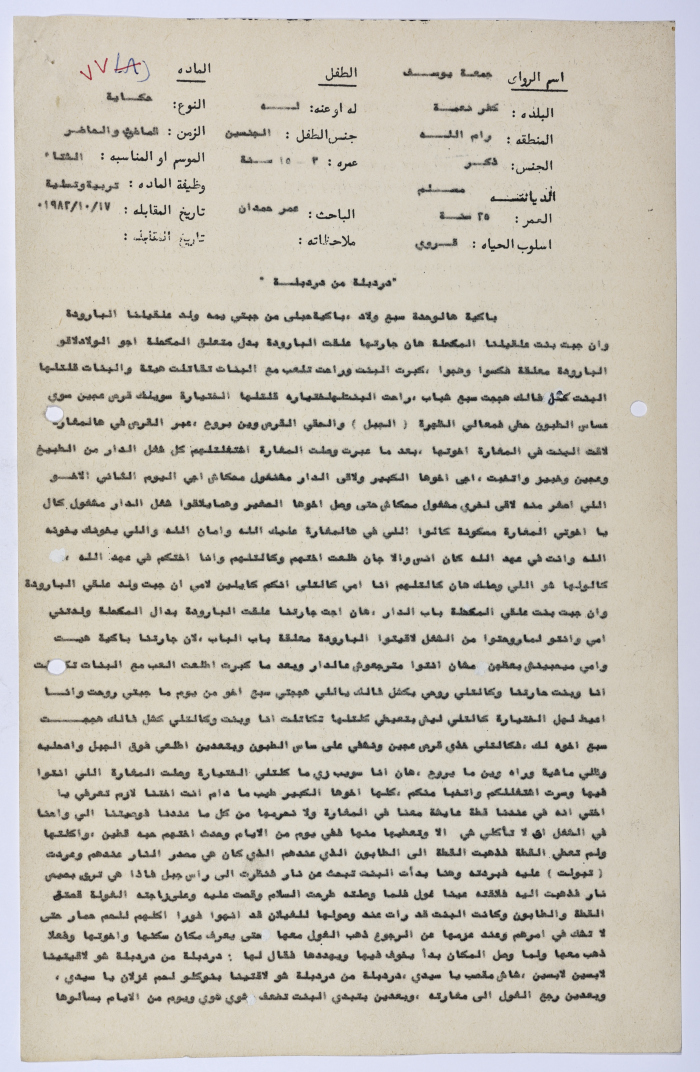 ٧٧ (٨)
اسم الراوي: جمعة يوسف    الطفل    الماده
البلده: كفر نعمة    له او عنه: لــه    النوع: حكاية
المنطقه: رام اللــه    جنس الطفل: الجنسين    الزمن: الماضي والحاضر
الجنس: ذكــر    عمره: ٣ – ١٥ سنة    الموسم او المناسبه: الشتاء
الديانتــه مسلــم    وظيفة الماده: تربية وتسلية
العمر: ٢٥ سنة    الباحث: عمر حمدان    تاريخ المقابله: ١٩٨٢/١٠/١٧
اسلوب الحياه: قــروي    ملاحظاته:    تاريخ المقابله:
"دردبلة من دردبلــة"
باكية هالوحدة سبع ولاد ،باكية حبلى من جبتي يمه ولد علقيلنا البارودة
وان جبت بنت علقيلنا المكحلة هان جارتها علقت البارودة بدل متعلق المكحلة اجو الولاد لاقو
البارودة معلقة فكسوا وهجوا ،كبرت البنت وراحت تلعب مع البنات تقاتلت هيتة والبنات قلتلها
البنت كشل فالك هججت سبع شباب ،راحت البنت لهلختياره قلتلها الختيارة سويلك قرص عجين سوي
عساس الطبون حطي فمعالي الظهرة ( الجبل ) والحقي القرص وين بروح ،عبر القرص في هالمغاره
لاقت البنت في المغارة اخوتها ،بعد ما عبرت وصلت المغارة اشتغلتلهم كل شغل الدار من الطبيخ
وعجين وخبيز واتخبت ،اجى اخوها الكبير ولاقى الدار مشغول محكاش اجى اليوم الثاني الاخــو
اللي اصغر منه لاقى لخرى مشغول محكاش حتى وصل اخوها الصغير وهمايلاقوا شغل الدار مشغول كال
يا اخوتي المغارة مسكونة كالوا اللي في هالمغارة عليك الله وامان الله واللي يخونك يخونه
الله وانت في عهد الله كان انس والا جان طلعت اختهم وكالتلهم وانا اختكم في عهد الله ،
كالولها شو اللي وصلك هان كالتلهم انا امي كالتلي انكم كايلين لامي ان جبت ولد علقي البارودة
وان جبت بنت علقي المكحلة باب الدار ،هان اجت جارتنا علقت البارودة بدال المكحلة ولدتني
امي وانتو لماروحتوا من الشغل لاقيتوا البارودة معلقة باب الباب ،لان جارتنا باكية هيــت
وامي ميحبينش بعظهن مشان انتوا مترجعوش عالدار وبعد ما كبرت اطلعت العب مع البنات
انا وبنت جارتنا وكالتلي روحي بكشل فالك ياللي هججتي سبع اخو من يوم ما جبتي روحت وانــا
اعيط لهل الختيارة كالتلي ليش بتعيطي كلتلها تكاتلت انا وبنت وكالتلي كشل فالك هججــت
سبع اخوه لك ،فكالتلي خذي قرص عجين ونشفي على ساس الطبون وبتعدين اطلعي فوق الجبل وادحليه
وظلي ماشية وراه وين ما بروح ،هان انا سويت زي ما كلتلي الختيارة وصلت المغارة اللي انتوا
فيها وسرت اشتغللكم واتخبا منكم ،كلها اخوها الكبير طيب ما دام انت اختنا لازم تعرفي يا
اختي انه في عندنا قطة عايشة معنا في المغارة ولا نحرمها من كل ما عندنا فوصيتنا الي واحنا
في الشغل اي لا تأكلي شي الا وتعطيها منها ففي يوم من الايام وجدت اختهم حبه قطين ،واكلتها
ولم تعطي القطة فذهبت القطة الى الطابون الذي عندهم الذي كان هو مصدر النار عندهم وعردت
( تبولت ) عليه فبردته وهنا بدأت البنت تبحث عن نار فنظرت الى راس جبل فاذا هي ترى بصيص
نار فذهبت اليه فلاقته عبنا غول فلما وصلته طرحت السلام وقصت عليه وعلى زوجته الغولة قصتي
القطة والطابون وكانت البنت قد رات عند وصولها للغيلان قد انهوا فورا اكلهم للحم حمار حتى
لا تشك في امرهم وعند عزمها عن الرجوع ذهب الغول معها حتى يعرف مكان سكنها واخوتها وفعلا
ذهب معها ولما وصل المكان بدأ يخوف فيها ويهددها فقال لها : دردبلة من دردبلة شو لاقيتينا
لابسين لابسين ،شاش مقصب يا سيدي ،دردبلة من دردبلة شو لاقتينا بنوكلو لحم غزلان يا سيدي ،
وبعدين رجع الغول الى مغارته ،وبعدين بتبدي البنت تضعف شوي شوي ويوم من الايام بسألوها